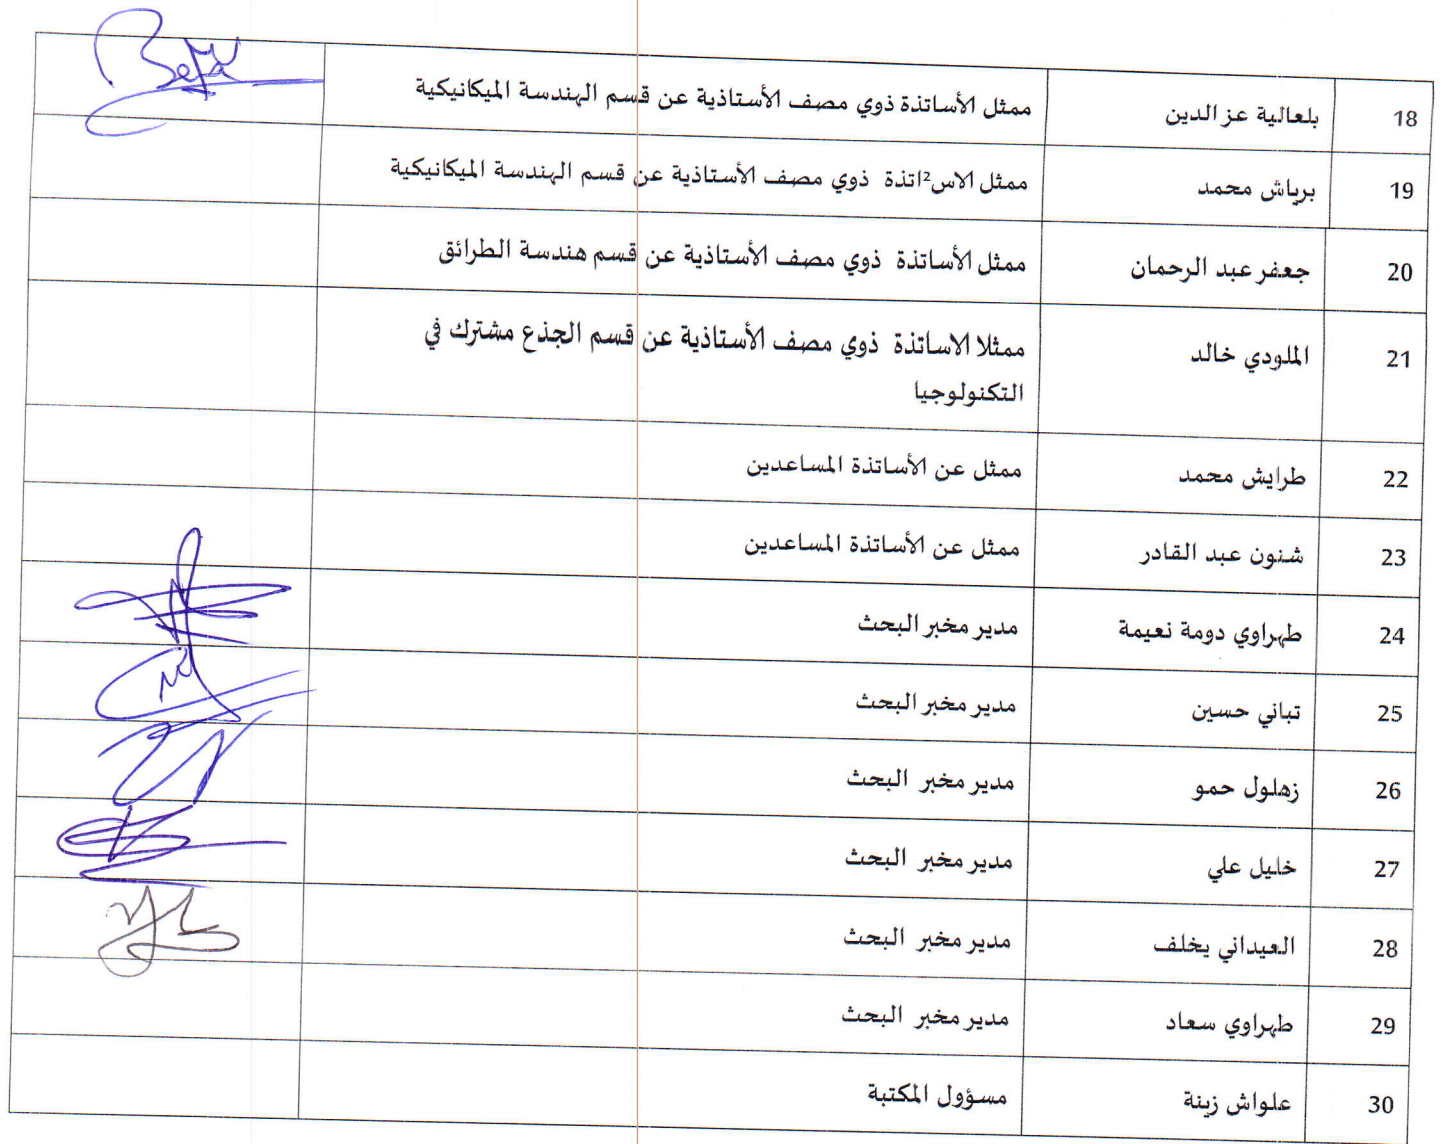 18 بلعالية عز الدين ممثل الأساتذة ذوي مصف الأستاذية عن قسم الهندسة الميكانيكية
19 برباش محمد ممثل الاس²اتذة ذوي مصف الأستاذية عن قسم الهندسة الميكانيكية
20 جعفر عبد الرحمان ممثل الأساتذة ذوي مصف الأستاذية عن قسم هندسة الطرائق
21 الملودي خالد ممثلا الاساتذة ذوي مصف الأستاذية عن قسم الجذع مشترك في
التكنولوجيا
22 طرايش محمد ممثل عن الأساتذة المساعدين
23 شنون عبد القادر ممثل عن الأساتذة المساعدين
24 طهراوي دومة نعيمة مدير مخبر البحث
25 تباني حسين مدير مخبر البحث
26 زهلول حمو مدير مخبر البحث
27 خليل علي مدير مخبر البحث
28 العيداني يخلف مدير مخبر البحث
29 طهراوي سعاد مدير مخبر البحث
30 علواش زينة مسؤول المكتبة